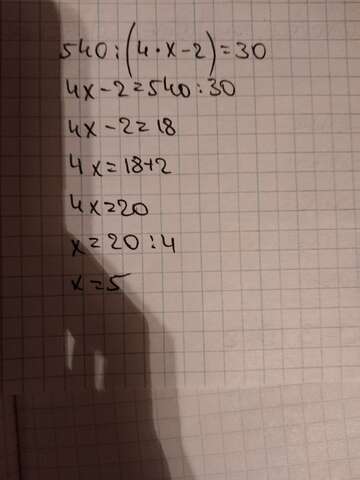 540:(4·x-2)=30
4x-2=540:30
4x-2=18
4x=18+2
4x=20
x=20:4
x=5